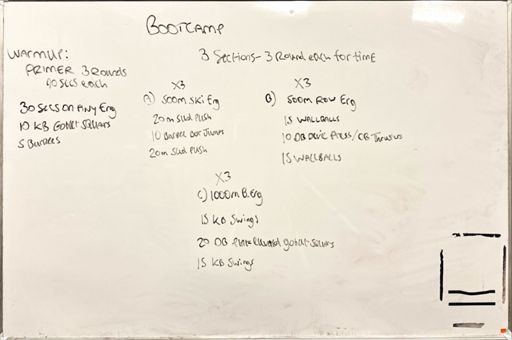 BOOTCAMP
3 Sections - 3 Round each for time
WARMUP:
PRIMER 3 Rounds
40 secs each
30 secs on Any Erg
10 KB Goblet Squats
5 Burpees
X3
A) 500m Ski Erg
20m Sled Push
10 Burpee
20m Sled Push
X3
B) 500m Row Erg
15 WALLBALLS
10 DB Devil Press/DB Thrusters
15 WALLBALLS
X3
C) 1000m B.Erg
15 KB Swings
20 DB Elevated goblet squats
15 KB Swings